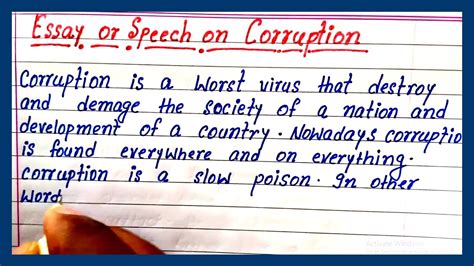 Essay or Speech on Corruption
Corruption is a worst virus that destroy
and demage the society of a nation and
development of a country. Nowadays corruptio
is found everywhere and on everything.
corruption is a slow poison. In other
word